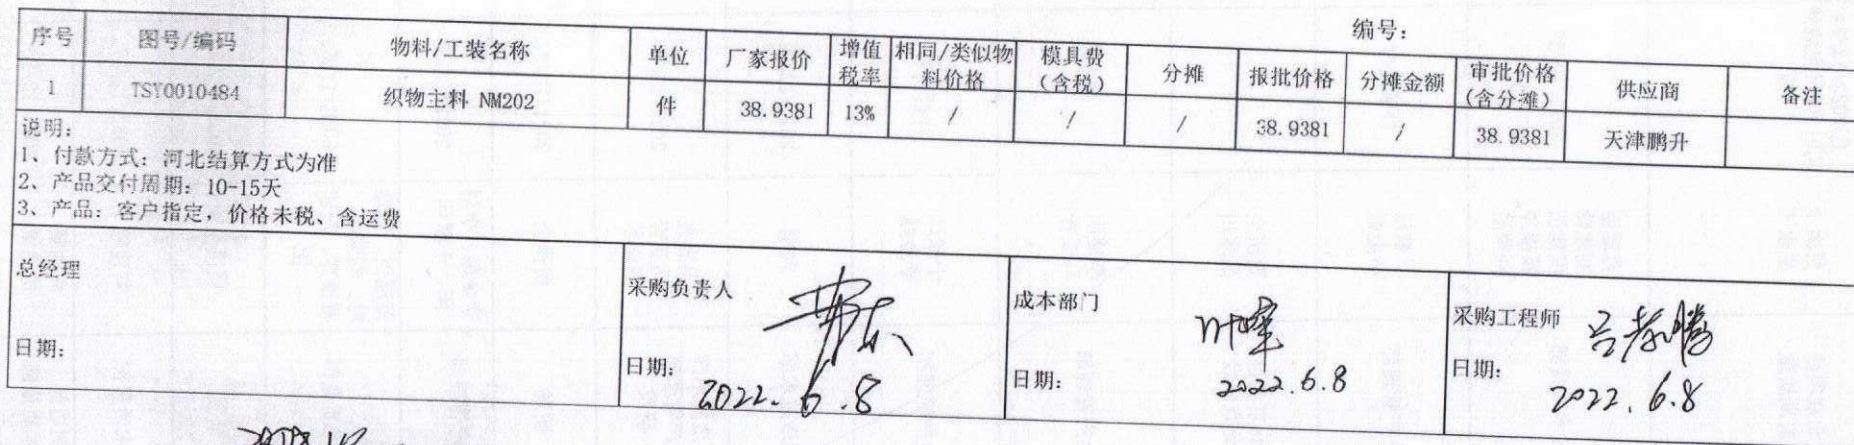 编号：
序号 图号/编码 物料/工装名称 单位 厂家报价 增值税率 相同/类似物料价格 模具费（含税） 分摊 报批价格 分摊金额 审批价格（含分摊） 供应商 备注
1 TSY0010484 织物主料 NM202 件 38.9381 13% / / / 38.9381 / 38.9381 天津鹏升
说明：
1、付款方式：河北结算方式为准
2、产品交付周期：10-15天
3、产品：客户指定，价格未税、含运费
总经理 采购负责人 成本部门 采购工程师
日期： 日期：2022.6.8 日期：2022.6.8 日期：2022.6.8